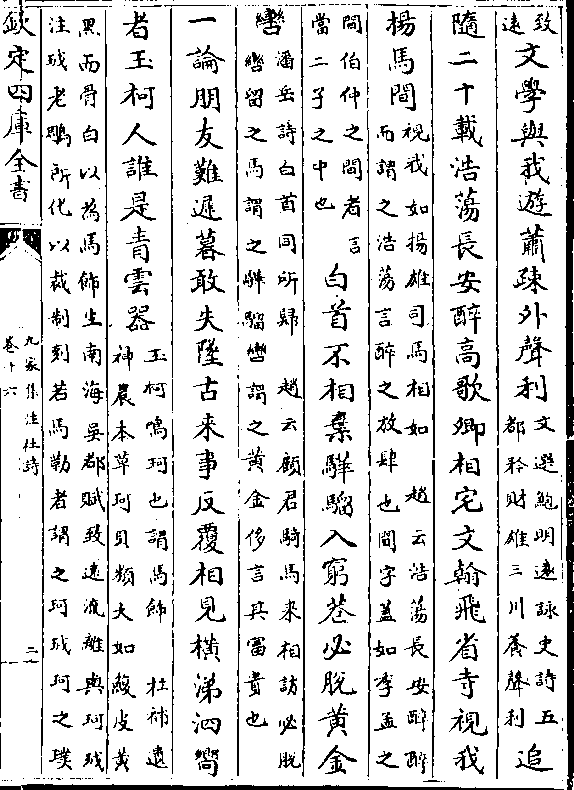 致
遠
文學與我遊蕭疎外聲利
文選鮑明遠詠史詩五
都矜財雄三川養聲利
追
隨二十載浩蕩長安醉高歌卿相宅文翰飛省寺視我
揚馬間
視我如揚雄司馬相如 趙云浩蕩長安醉醉
而謂之浩蕩言醉之放肆也間字蓋如季孟之
間伯仲之間者言
當二子之中也
白首不相棄驊騮入窮巷必脫黃金
轡
潘岳詩白首同所歸 趙云顧君騎馬来相訪必脫
轡留之馬謂之驊騮轡謂之黄金侈言其富貴也
一論朋友難遲暮敢失墜古来事反覆相見橫涕泗嚮
者玉柯人誰是青雲器
玉柯鳴珂也謂馬飾 杜補遺
神農本草珂貝類大如鰒皮黄
黑而骨白以為馬飾生南海吳都賦致遠流離與珂珬
注珬老鵰所化以裁制刻若馬勒者謂之珂珬珂之璞
欽定四庫全書
九家集注杜詩
卷十六